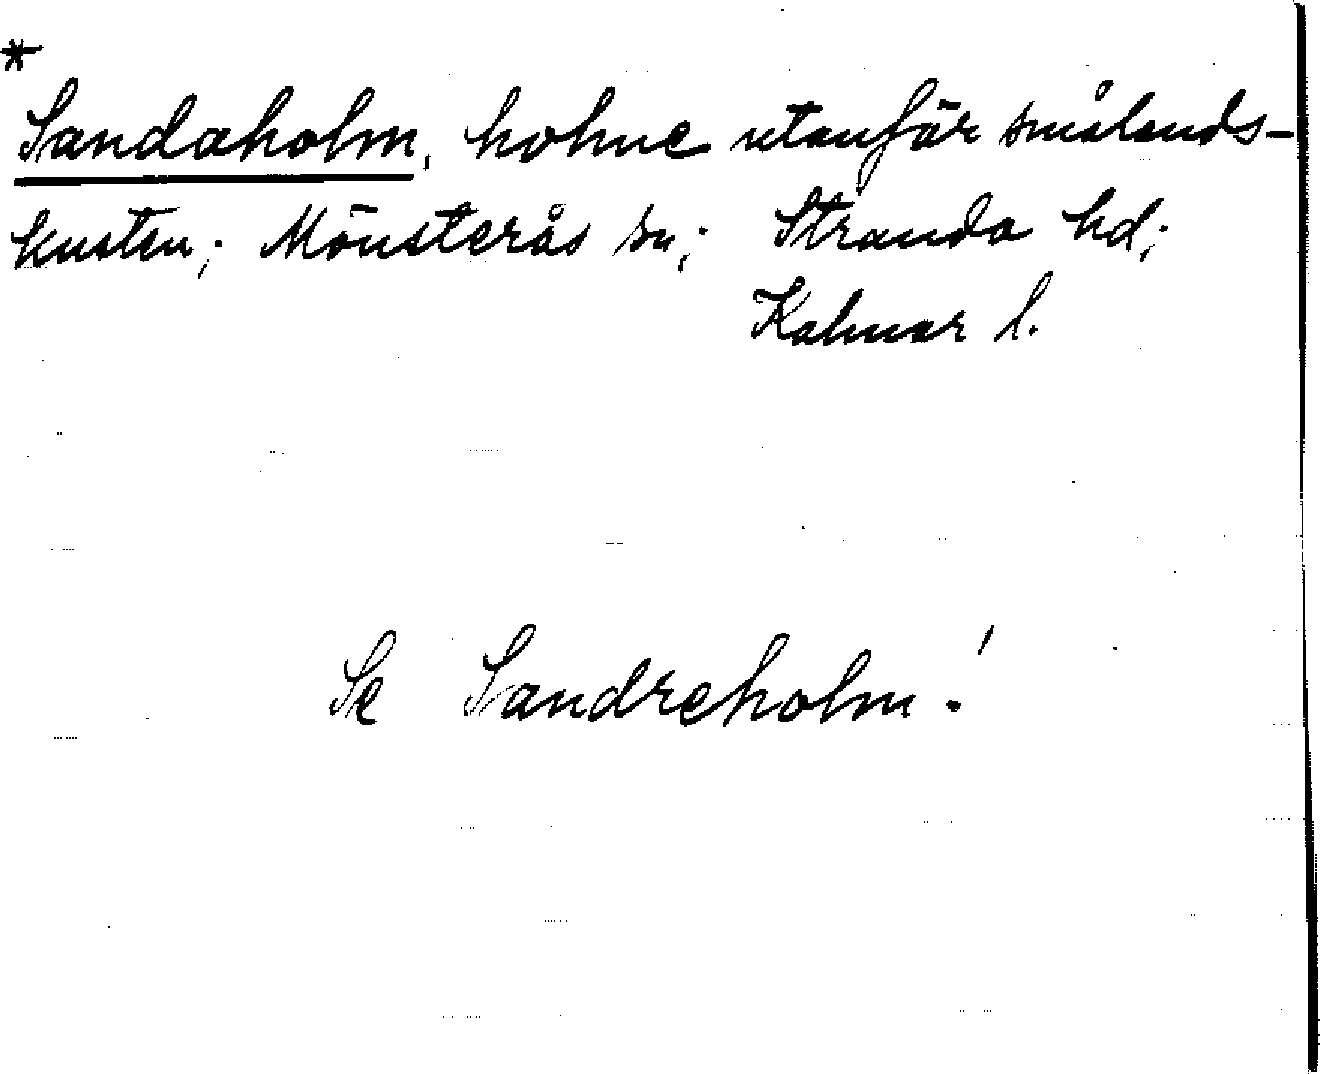 *
Sandaholm, holme utanför smålands-
kusten; Mönsterås sn; Stranda hd;
Kalmar l.
Se Sandreholm!